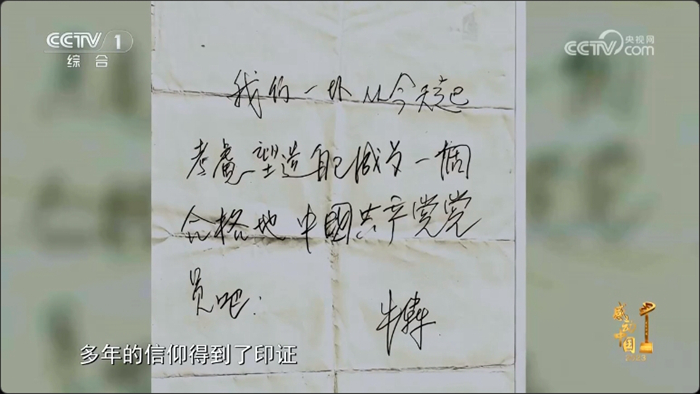 CCTV 1
综合
CCTV.com 央视网
我们一班从今天起
考虑塑造自己成为一個
合格地中國共产党党
员吧.
牛犇
多年的信仰得到了印证
感动中国
2023